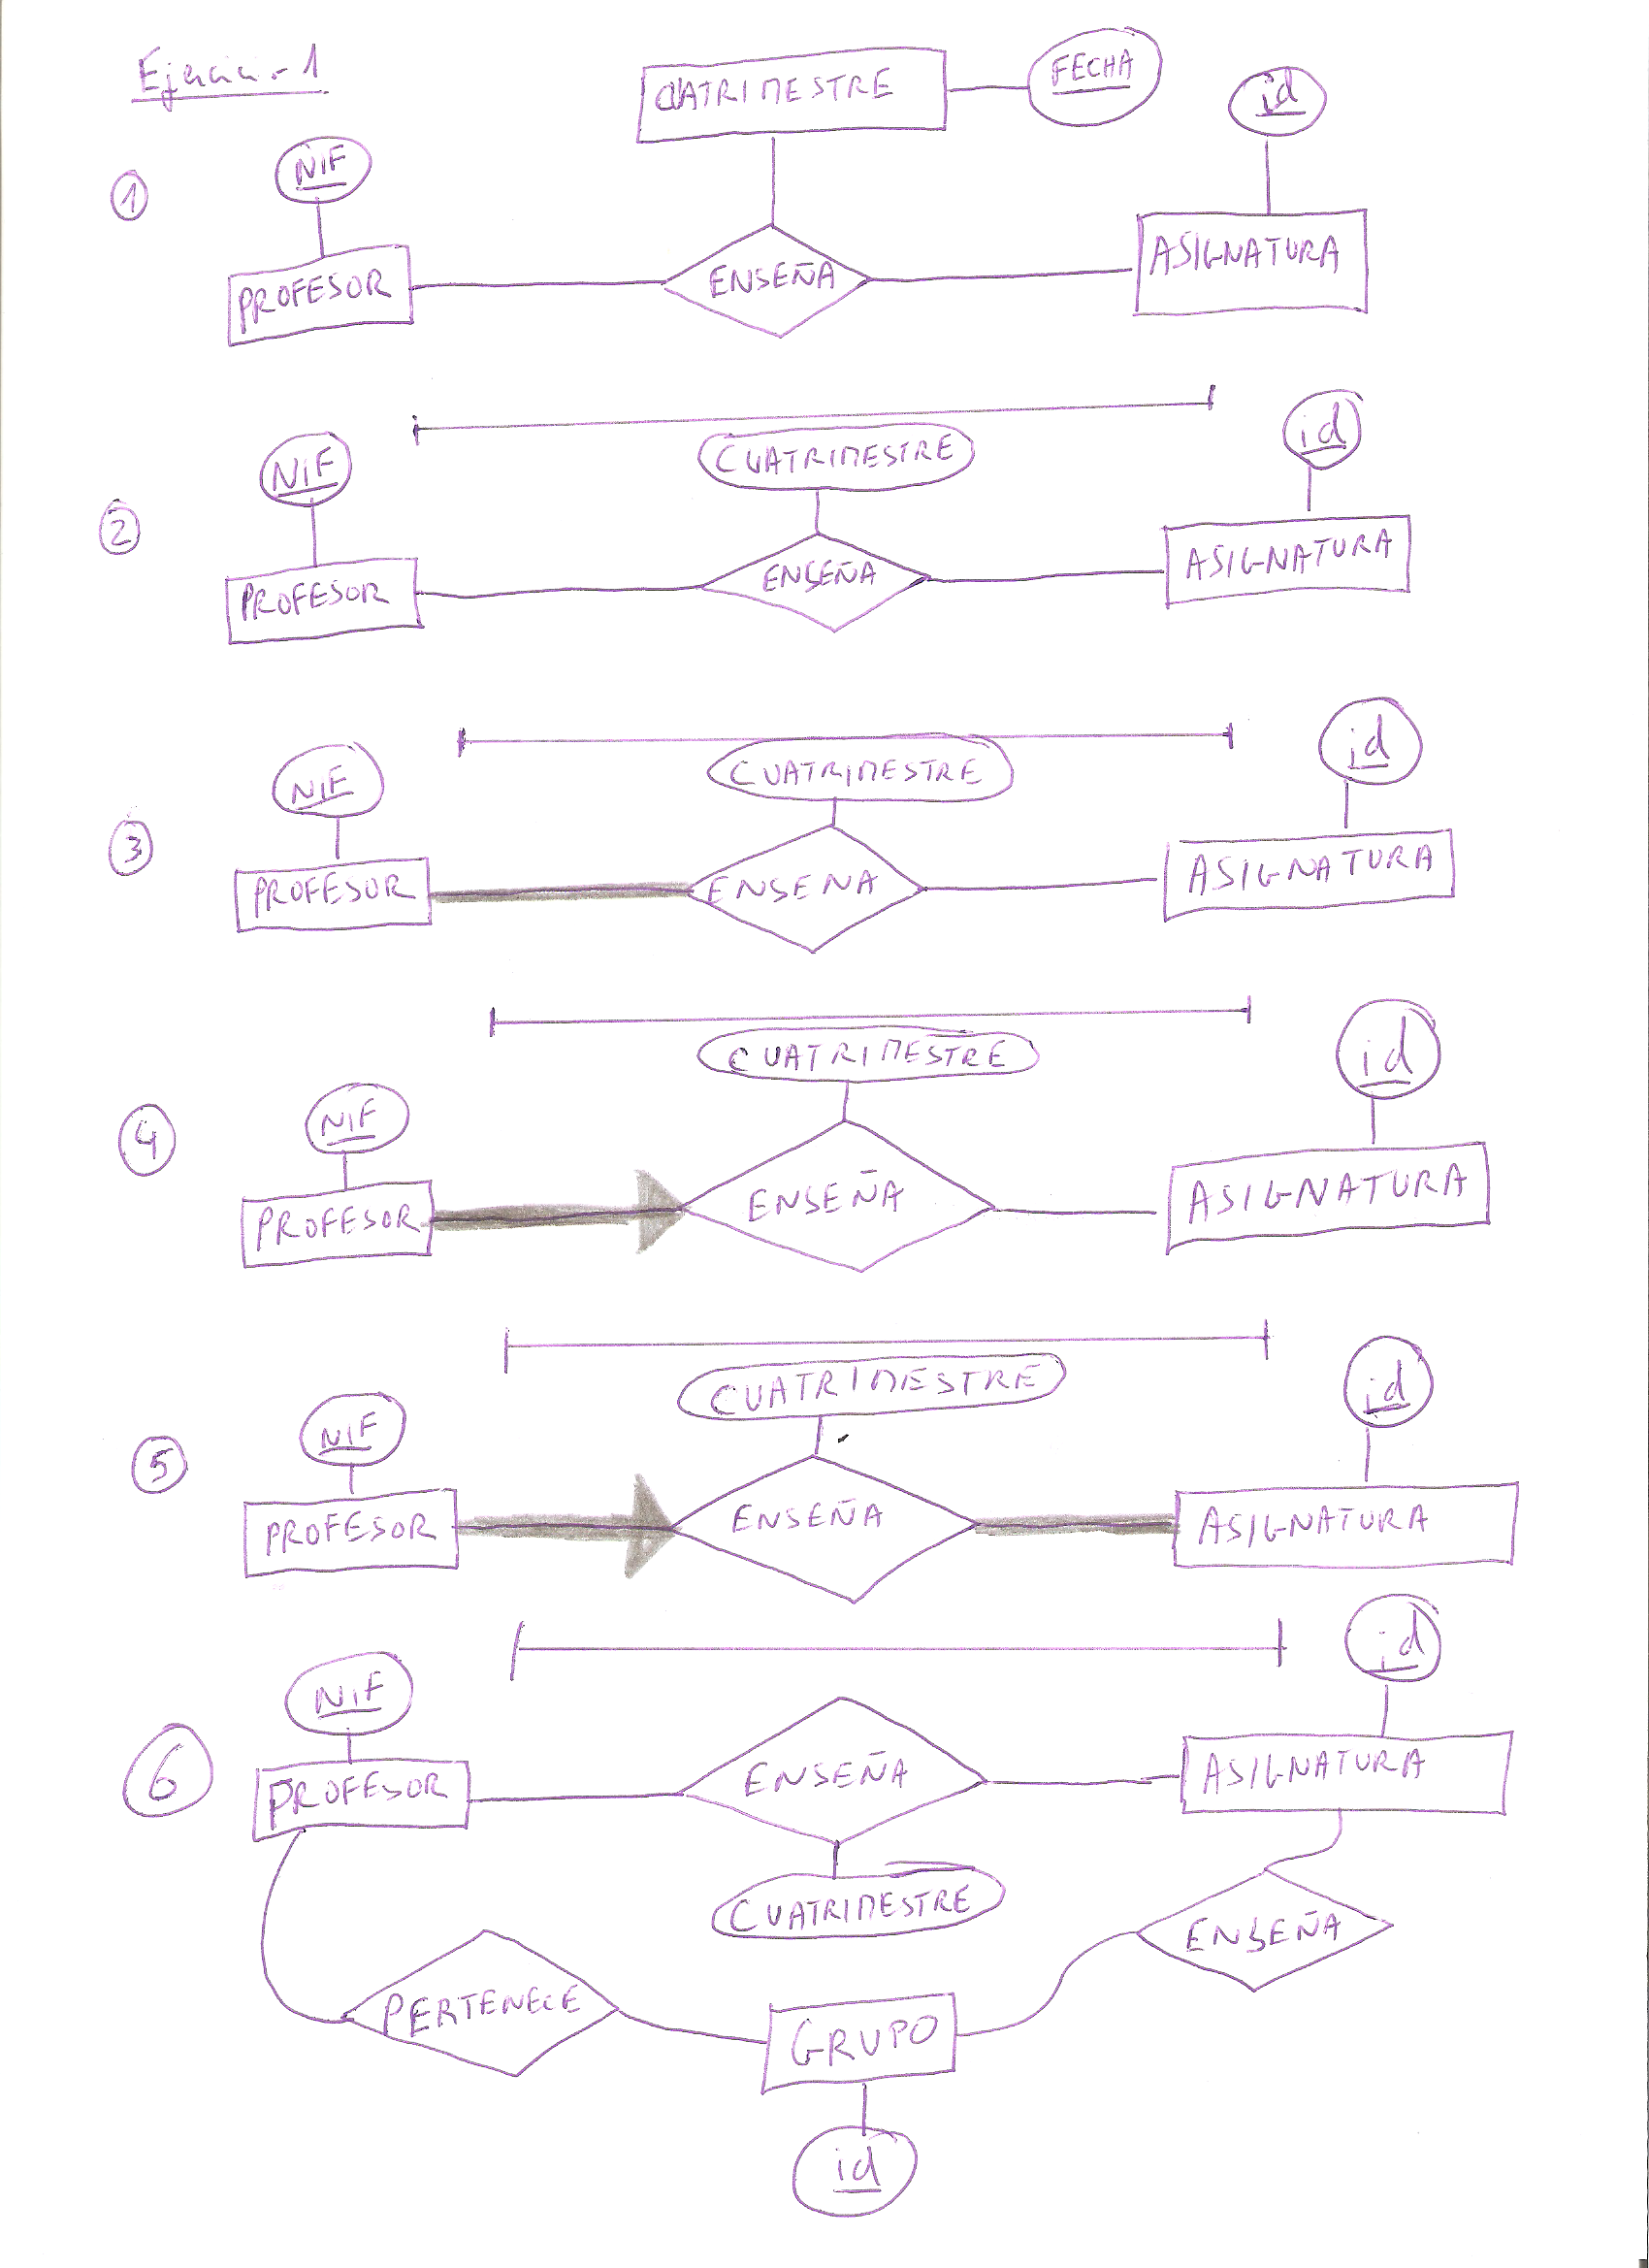 Ejercicio 1
CUATRIMESTRE
FECHA
id
1
NIF
PROFESOR
ENSEÑA
ASIGNATURA
2
NIF
CUATRIMESTRE
id
PROFESOR
ENSEÑA
ASIGNATURA
3
NIF
CUATRIMESTRE
id
PROFESOR
ENSENA
ASIGNATURA
4
NIF
CUATRIMESTRE
id
PROFESOR
ENSEÑA
ASIGNATURA
5
NIF
CUATRIMESTRE
id
PROFESOR
ENSEÑA
ASIGNATURA
6
NIF
id
PROFESOR
ENSEÑA
ASIGNATURA
CUATRIMESTRE
ENSEÑA
PERTENECE
GRUPO
id